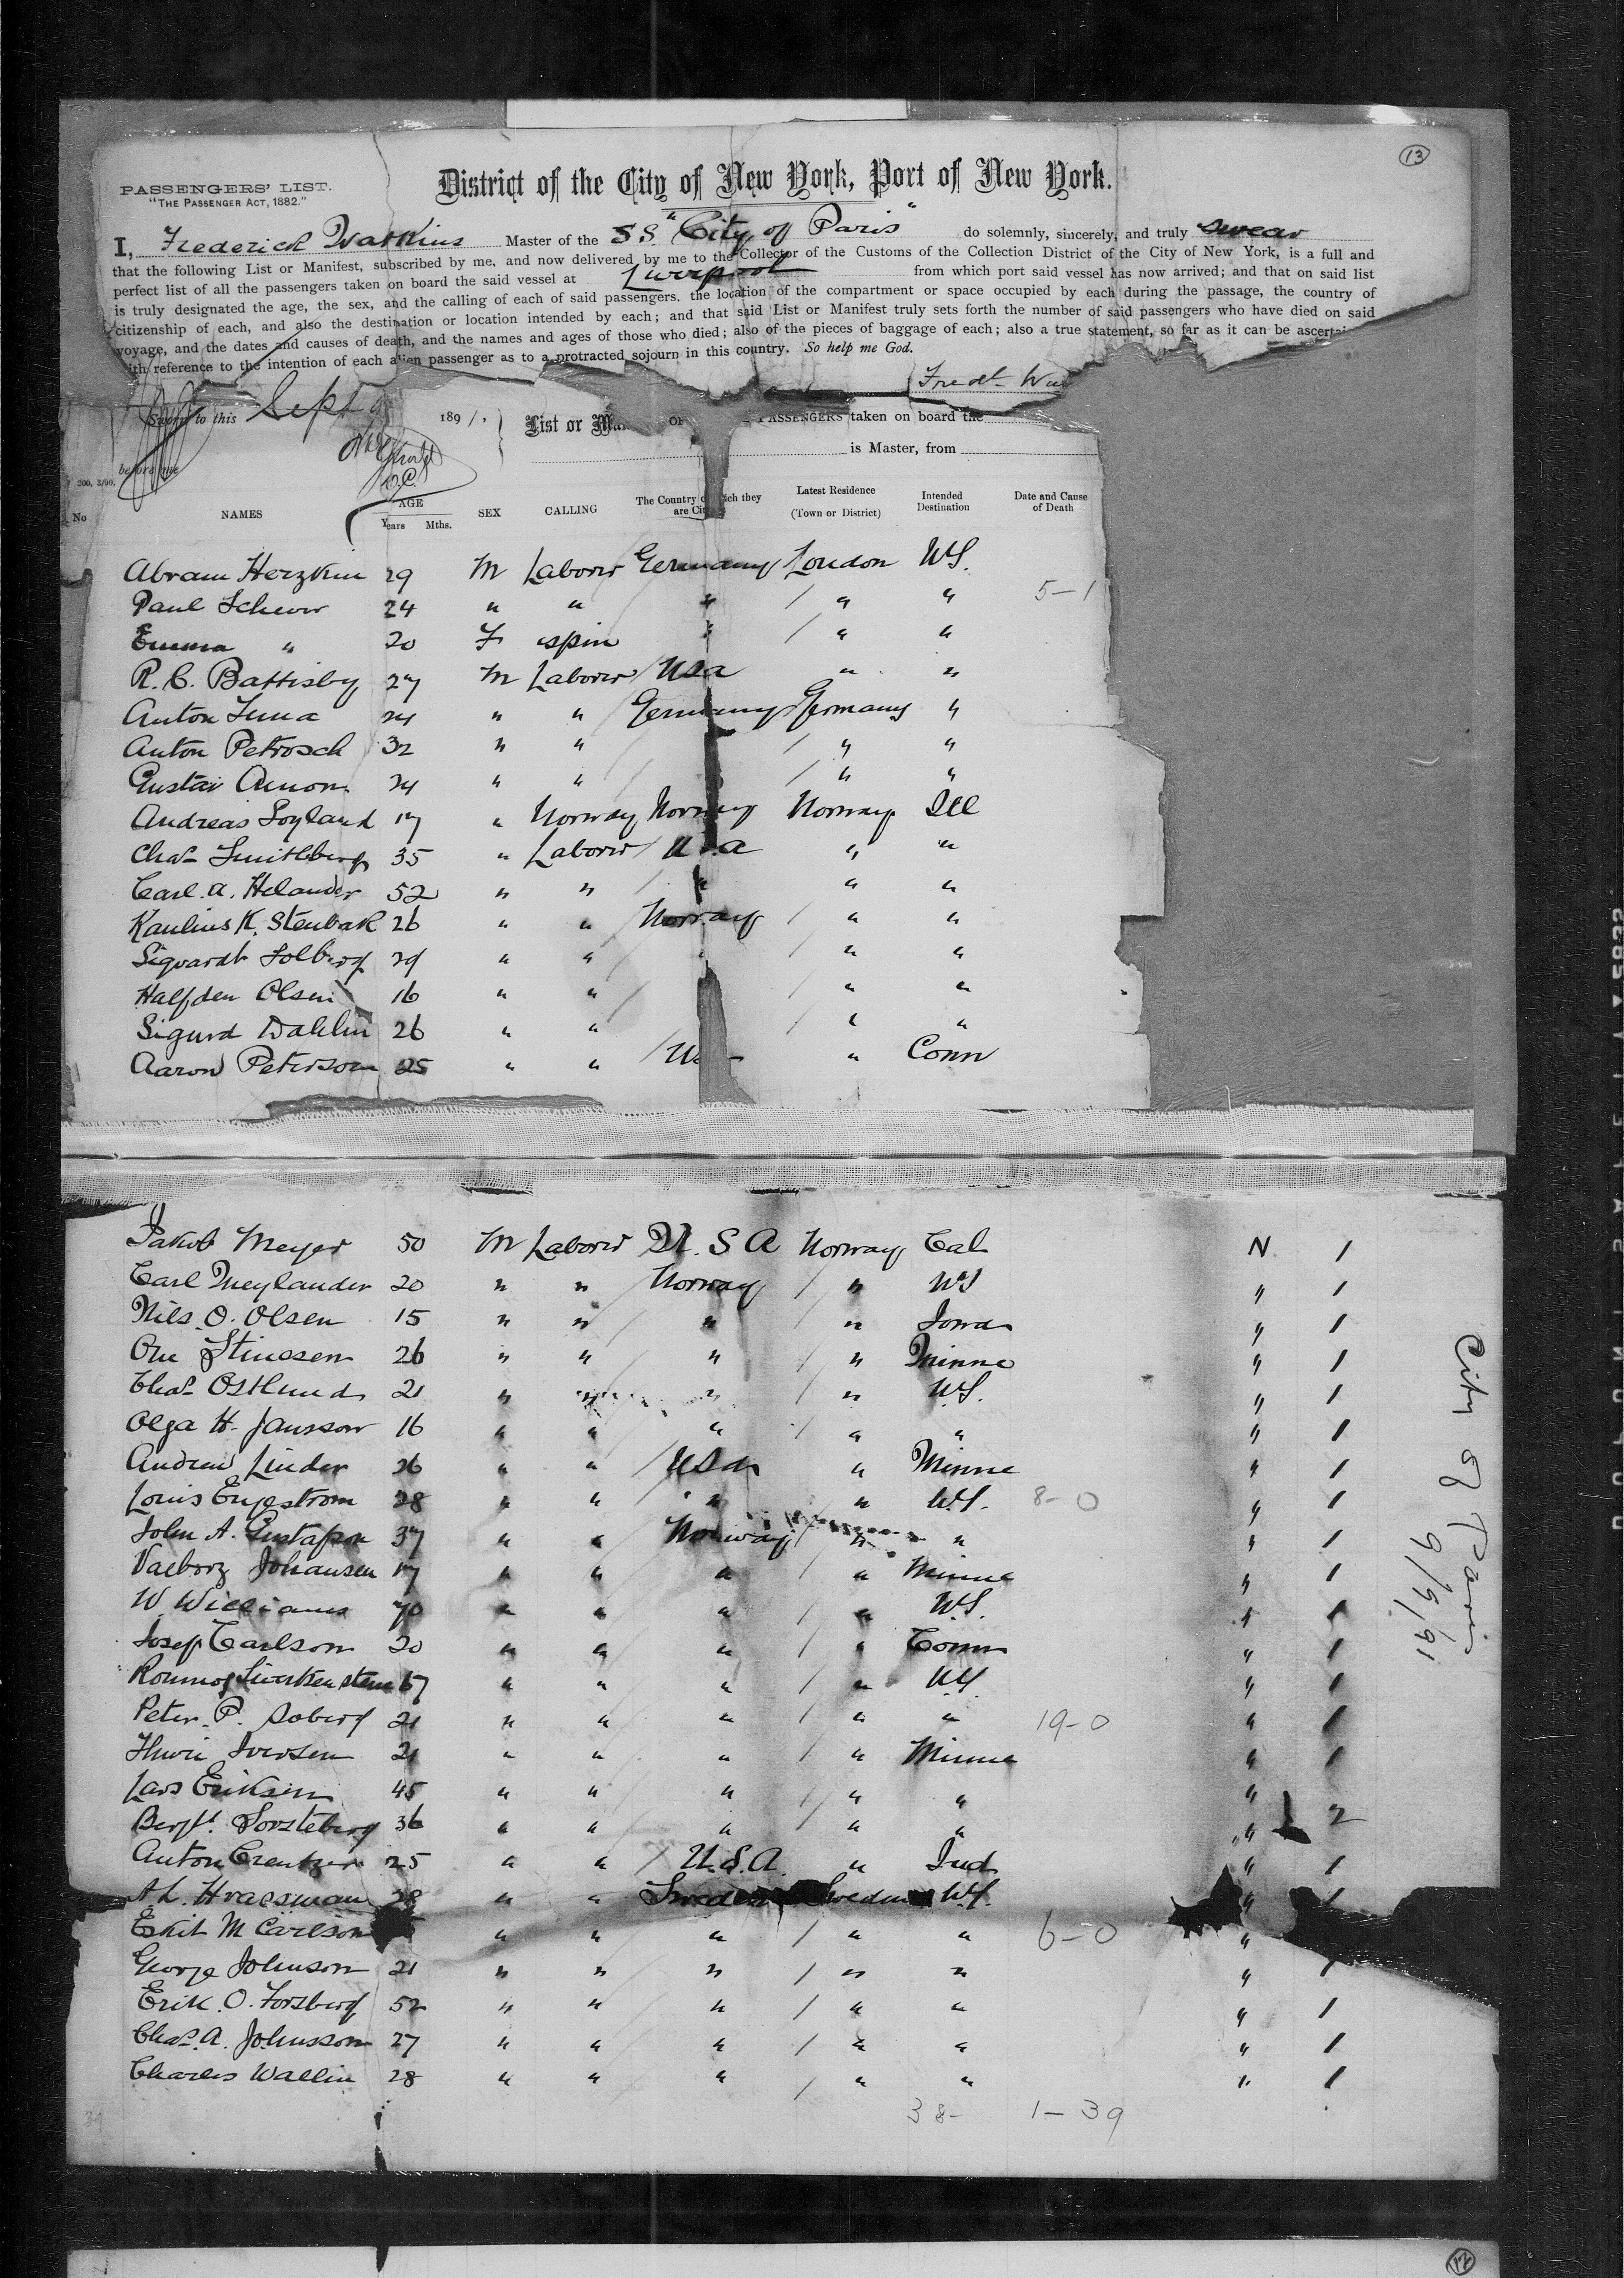 13
PASSENGERS' LIST.
"THE PASSENGER ACT, 1882."
District of the City of New York, Port of New York.
I, Frederick Watkins Master of the S.S. "City of Paris" do solemnly, sincerely, and truly swear
that the following List or Manifest, subscribed by me, and now delivered by me to the Collector of the Customs of the Collection District of the City of New York, is a full and
perfect list of all the passengers taken on board the said vessel at Liverpool from which port said vessel has now arrived; and that on said list
is truly designated the age, the sex, and the calling of each of said passengers. the location of the compartment or space occupied by each during the passage, the country of
citizenship of each, and also the destination or location intended by each; and that said List or Manifest truly sets forth the number of said passengers who have died on said
voyage, and the dates and causes of death, and the names and ages of those who died; also of the pieces of baggage of each; also a true statement, so far as it can be
with reference to the intention of each alien passenger as to a protracted sojourn in this country. So help me God.
Fredk
Sworn to this Sept 9 1891,
before me
List or PASSENGERS taken on board the
is Master, from
200, 3/90.
No NAMES AGE Years Mths. SEX CALLING The Country of which they are Latest Residence (Town or District) Intended Destination Date and Cause of Death
Abram Herzkin 29 M Laborer Germany London WS.
Paul Schewr 24 " " " / " " 5-1
Emma " 20 F spin " / " "
R. C. Battisby 27 M Laborer / USA " "
Anton 24 " " Germany Germany "
Anton Petrosch 32 " " / " "
Gustav Amon 24 " " / / " "
Andreas Soyland 17 " Norway Norway Norway Ill
Chas Smithberg 35 " Laborer / U.S.A " "
Carl. A. Helander 52 " " / " " "
Kaulius K. Stenbak 26 " " Norway / " "
Sigvardt Solberg 29 " " / / " "
Halfden Olsen 16 " " / / " "
Sigurd Dahlin 26 " " / " "
Aaron Peterson 25 " " / U " Conn
Jakob Meyer 50 M Laborer U.S A Norway Cal N 1
Carl Meylander 20 " " Norway / " WS " 1
Nils. O. Olsen 15 " " / " " Iowa " 1
Ole Stinesen 26 " " " / " Minne " 1
Chas Ostlund 21 " " " / " WS. " 1
Olga H. Jansson 16 " " " / " " " 1
Andrew Linder 26 " " / USA " Minne " 1
Louis Engestrom 28 " " " " WS. 8-0 " 1
John A. Gustafson 37 " " Norway / " " " 1
Valborg Johansen 17 " " " " Minne " 1
W Williams 70 " " " / " WS. " 1
Josef Carlson 20 " " " / " Conn " 1
" " " / " WS. " 1
Peter. P. Soberg 21 " " " / " " 19-0 " 1
Iversen 21 " " " / " Minne " 1
Lars Eriksen 45 " " " / " " "
Bergt. Torsteberg 36 " " " / " " " 2
Anton Crentzer 25 " " / U.S.A. " Ind " 1
A L. Hvassman 28 " " Sweden Sweden WS. " 1
M Carlson " " " / " " 6-0 "
George Johnson 21 " " " / " " " 1
Erik. O. Forsberg 52 " " " / " " " 1
Chas. A. Johnsson 27 " " " / " " " 1
Charles Wallin 28 " " " / " " " 1
39 38- 1-39
City of Paris
9/9/91
12